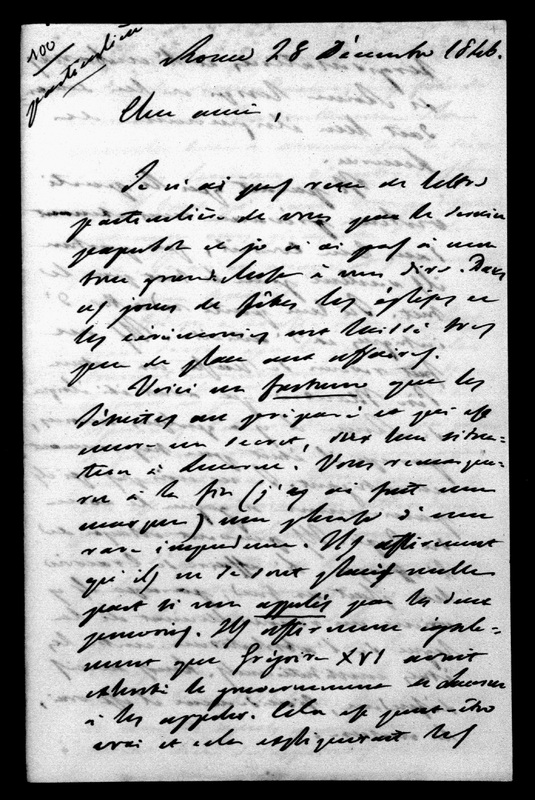 100
particulière
Rome 28 Décembre 1846.
Cher ami,
Je n'ai pas reçu de lettre
particulière de vous par le dernier
paquebot et je n'ai pas à mon
tour grand chose à vous dire. Dans
ces jours de fêtes les églises et
les cérémonies ont laissé très
peu de place aux affaires.
Voici un factum que les
Jésuites ont préparé et qui est
encore un secret, sur leur situa-
tion à Lucerne. Vous remarque-
rez à la fin (j'y ai fait une
marque) une phrase d'une
rare impudence. Ils affirment
qu'ils ne se sont placés nulle
part si non appelés par les deux
pouvoirs. Ils affirment égale-
ment que Grégoire XVI avait
le gouvernement de Lucerne
à les appeler. Cela est peut-être
vrai et cela expliquerait les